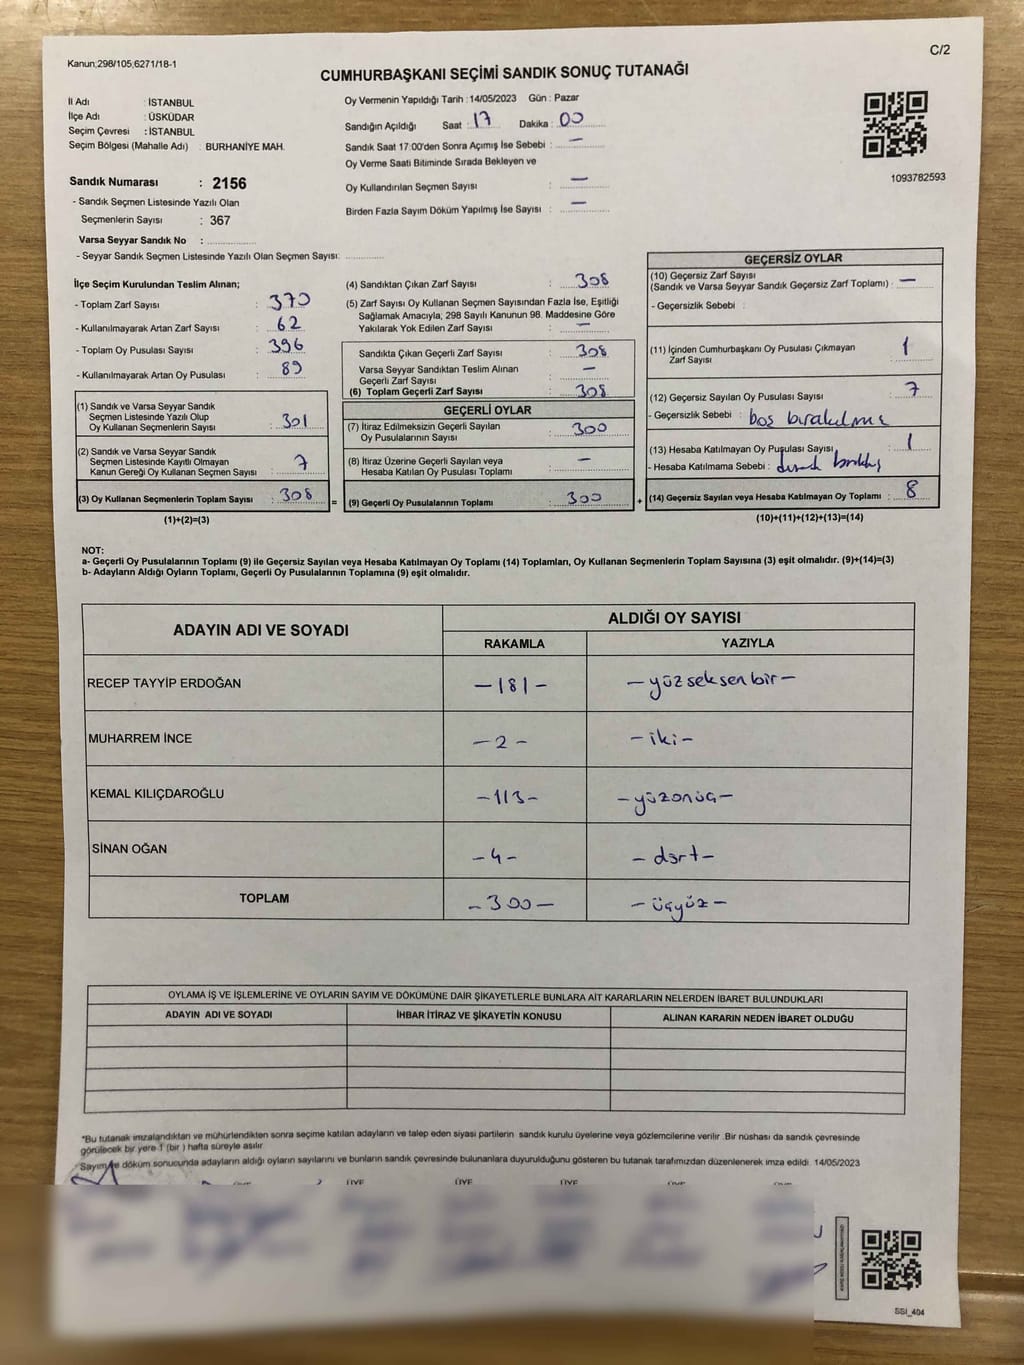 Kanun;298/105;6271/18-1
C/2
CUMHURBAŞKANI SEÇİMİ SANDIK SONUÇ TUTANAĞI
İl Adı : İSTANBUL
İlçe Adı : ÜSKÜDAR
Seçim Çevresi : İSTANBUL
Seçim Bölgesi (Mahalle Adı) : BURHANİYE MAH.
Sandık Numarası : 2156
- Sandık Seçmen Listesinde Yazılı Olan
Seçmenlerin Sayısı : 367
Varsa Seyyar Sandık No :
- Seyyar Sandık Seçmen Listesinde Yazılı Olan Seçmen Sayısı:
Oy Vermenin Yapıldığı Tarih : 14/05/2023 Gün : Pazar
Sandığın Açıldığı Saat : 17 Dakika : 00
Sandık Saat 17:00'den Sonra Açımış İse Sebebi : —
Oy Verme Saati Bitiminde Sırada Bekleyen ve
Oy Kullandırılan Seçmen Sayısı : —
Birden Fazla Sayım Döküm Yapılmış İse Sayısı : —
1093782593
İlçe Seçim Kurulundan Teslim Alınan;
- Toplam Zarf Sayısı : 370
- Kullanılmayarak Artan Zarf Sayısı : 62
- Toplam Oy Pusulası Sayısı : 396
- Kullanılmayarak Artan Oy Pusulası : 89
(1) Sandık ve Varsa Seyyar Sandık
Seçmen Listesinde Yazılı Olup
Oy Kullanan Seçmenlerin Sayısı : 301
(2) Sandık ve Varsa Seyyar Sandık
Seçmen Listesinde Kayıtlı Olmayan
Kanun Gereği Oy Kullanan Seçmen Sayısı : 7
(3) Oy Kullanan Seçmenlerin Toplam Sayısı : 308 =
(1)+(2)=(3)
(4) Sandıktan Çıkan Zarf Sayısı : 308
(5) Zarf Sayısı Oy Kullanan Seçmen Sayısından Fazla İse, Eşitliği
Sağlamak Amacıyla; 298 Sayılı Kanunun 98. Maddesine Göre
Yakılarak Yok Edilen Zarf Sayısı : —
Sandıkta Çıkan Geçerli Zarf Sayısı : 308
Varsa Seyyar Sandıktan Teslim Alınan
Geçerli Zarf Sayısı : —
(6) Toplam Geçerli Zarf Sayısı : 308
GEÇERLİ OYLAR
(7) İtiraz Edilmeksizin Geçerli Sayılan
Oy Pusulalarının Sayısı : 300
(8) İtiraz Üzerine Geçerli Sayılan veya
Hesaba Katılan Oy Pusulası Toplamı : —
(9) Geçerli Oy Pusulalarının Toplamı : 300 +
GEÇERSİZ OYLAR
(10) Geçersiz Zarf Sayısı
(Sandık ve Varsa Seyyar Sandık Geçersiz Zarf Toplamı) : —
- Geçersizlik Sebebi :
(11) İçinden Cumhurbaşkanı Oy Pusulası Çıkmayan
Zarf Sayısı : 1
(12) Geçersiz Sayılan Oy Pusulası Sayısı : 7
- Geçersizlik Sebebi : boş bırakılma
(13) Hesaba Katılmayan Oy Pusulası Sayısı : 1
- Hesaba Katılmama Sebebi :
(14) Geçersiz Sayılan veya Hesaba Katılmayan Oy Toplamı : 8
(10)+(11)+(12)+(13)=(14)
NOT:
a- Geçerli Oy Pusulalarının Toplamı (9) ile Geçersiz Sayılan veya Hesaba Katılmayan Oy Toplamı (14) Toplamları, Oy Kullanan Seçmenlerin Toplam Sayısına (3) eşit olmalıdır. (9)+(14)=(3)
b- Adayların Aldığı Oyların Toplamı, Geçerli Oy Pusulalarının Toplamına (9) eşit olmalıdır.
ADAYIN ADI VE SOYADI
ALDIĞI OY SAYISI
RAKAMLA YAZIYLA
RECEP TAYYİP ERDOĞAN –181– –yüzseksenbir–
MUHARREM İNCE –2– –iki–
KEMAL KILIÇDAROĞLU –113– –yüzonüç–
SİNAN OĞAN –4– –dört–
TOPLAM –300– –üçyüz–
OYLAMA İŞ VE İŞLEMLERİNE VE OYLARIN SAYIM VE DÖKÜMÜNE DAİR ŞİKAYETLERLE BUNLARA AİT KARARLARIN NELERDEN İBARET BULUNDUKLARI
ADAYIN ADI VE SOYADI İHBAR İTİRAZ VE ŞİKAYETİN KONUSU ALINAN KARARIN NEDEN İBARET OLDUĞU
*Bu tutanak imzalandıktan ve mühürlendikten sonra seçime katılan adayların ve talep eden siyasi partilerin sandık kurulu üyelerine veya gözlemcilerine verilir. Bir nüshası da sandık çevresinde
görülecek bir yere 1 (bir ) hafta süreyle asılır.
Sayım ve döküm sonucunda adayların aldığı oyların sayılarını ve bunların sandık çevresinde bulunanlara duyurulduğunu gösteren bu tutanak tarafımızdan düzenlenerek imza edildi. 14/05/2023
ÜYE ÜYE ÜYE ÜYE ÜYE
SSI_404